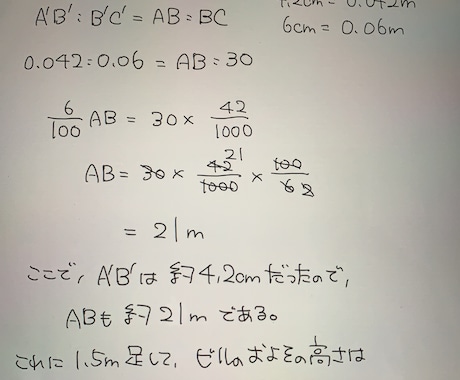 4.2cm = 0.042m
A'B' : B'C' = AB : BC
6cm = 0.06m
0.042 : 0.06 = AB : 30
6/100 AB = 30 × 42/1000
AB = 30 × 42 21/1000 × 100/6 2
= 21m
ここで, A'B'は 約4.2cmだったので,
ABも 約21m である。
これに 1.5m 足して, ビルのおよその高さは